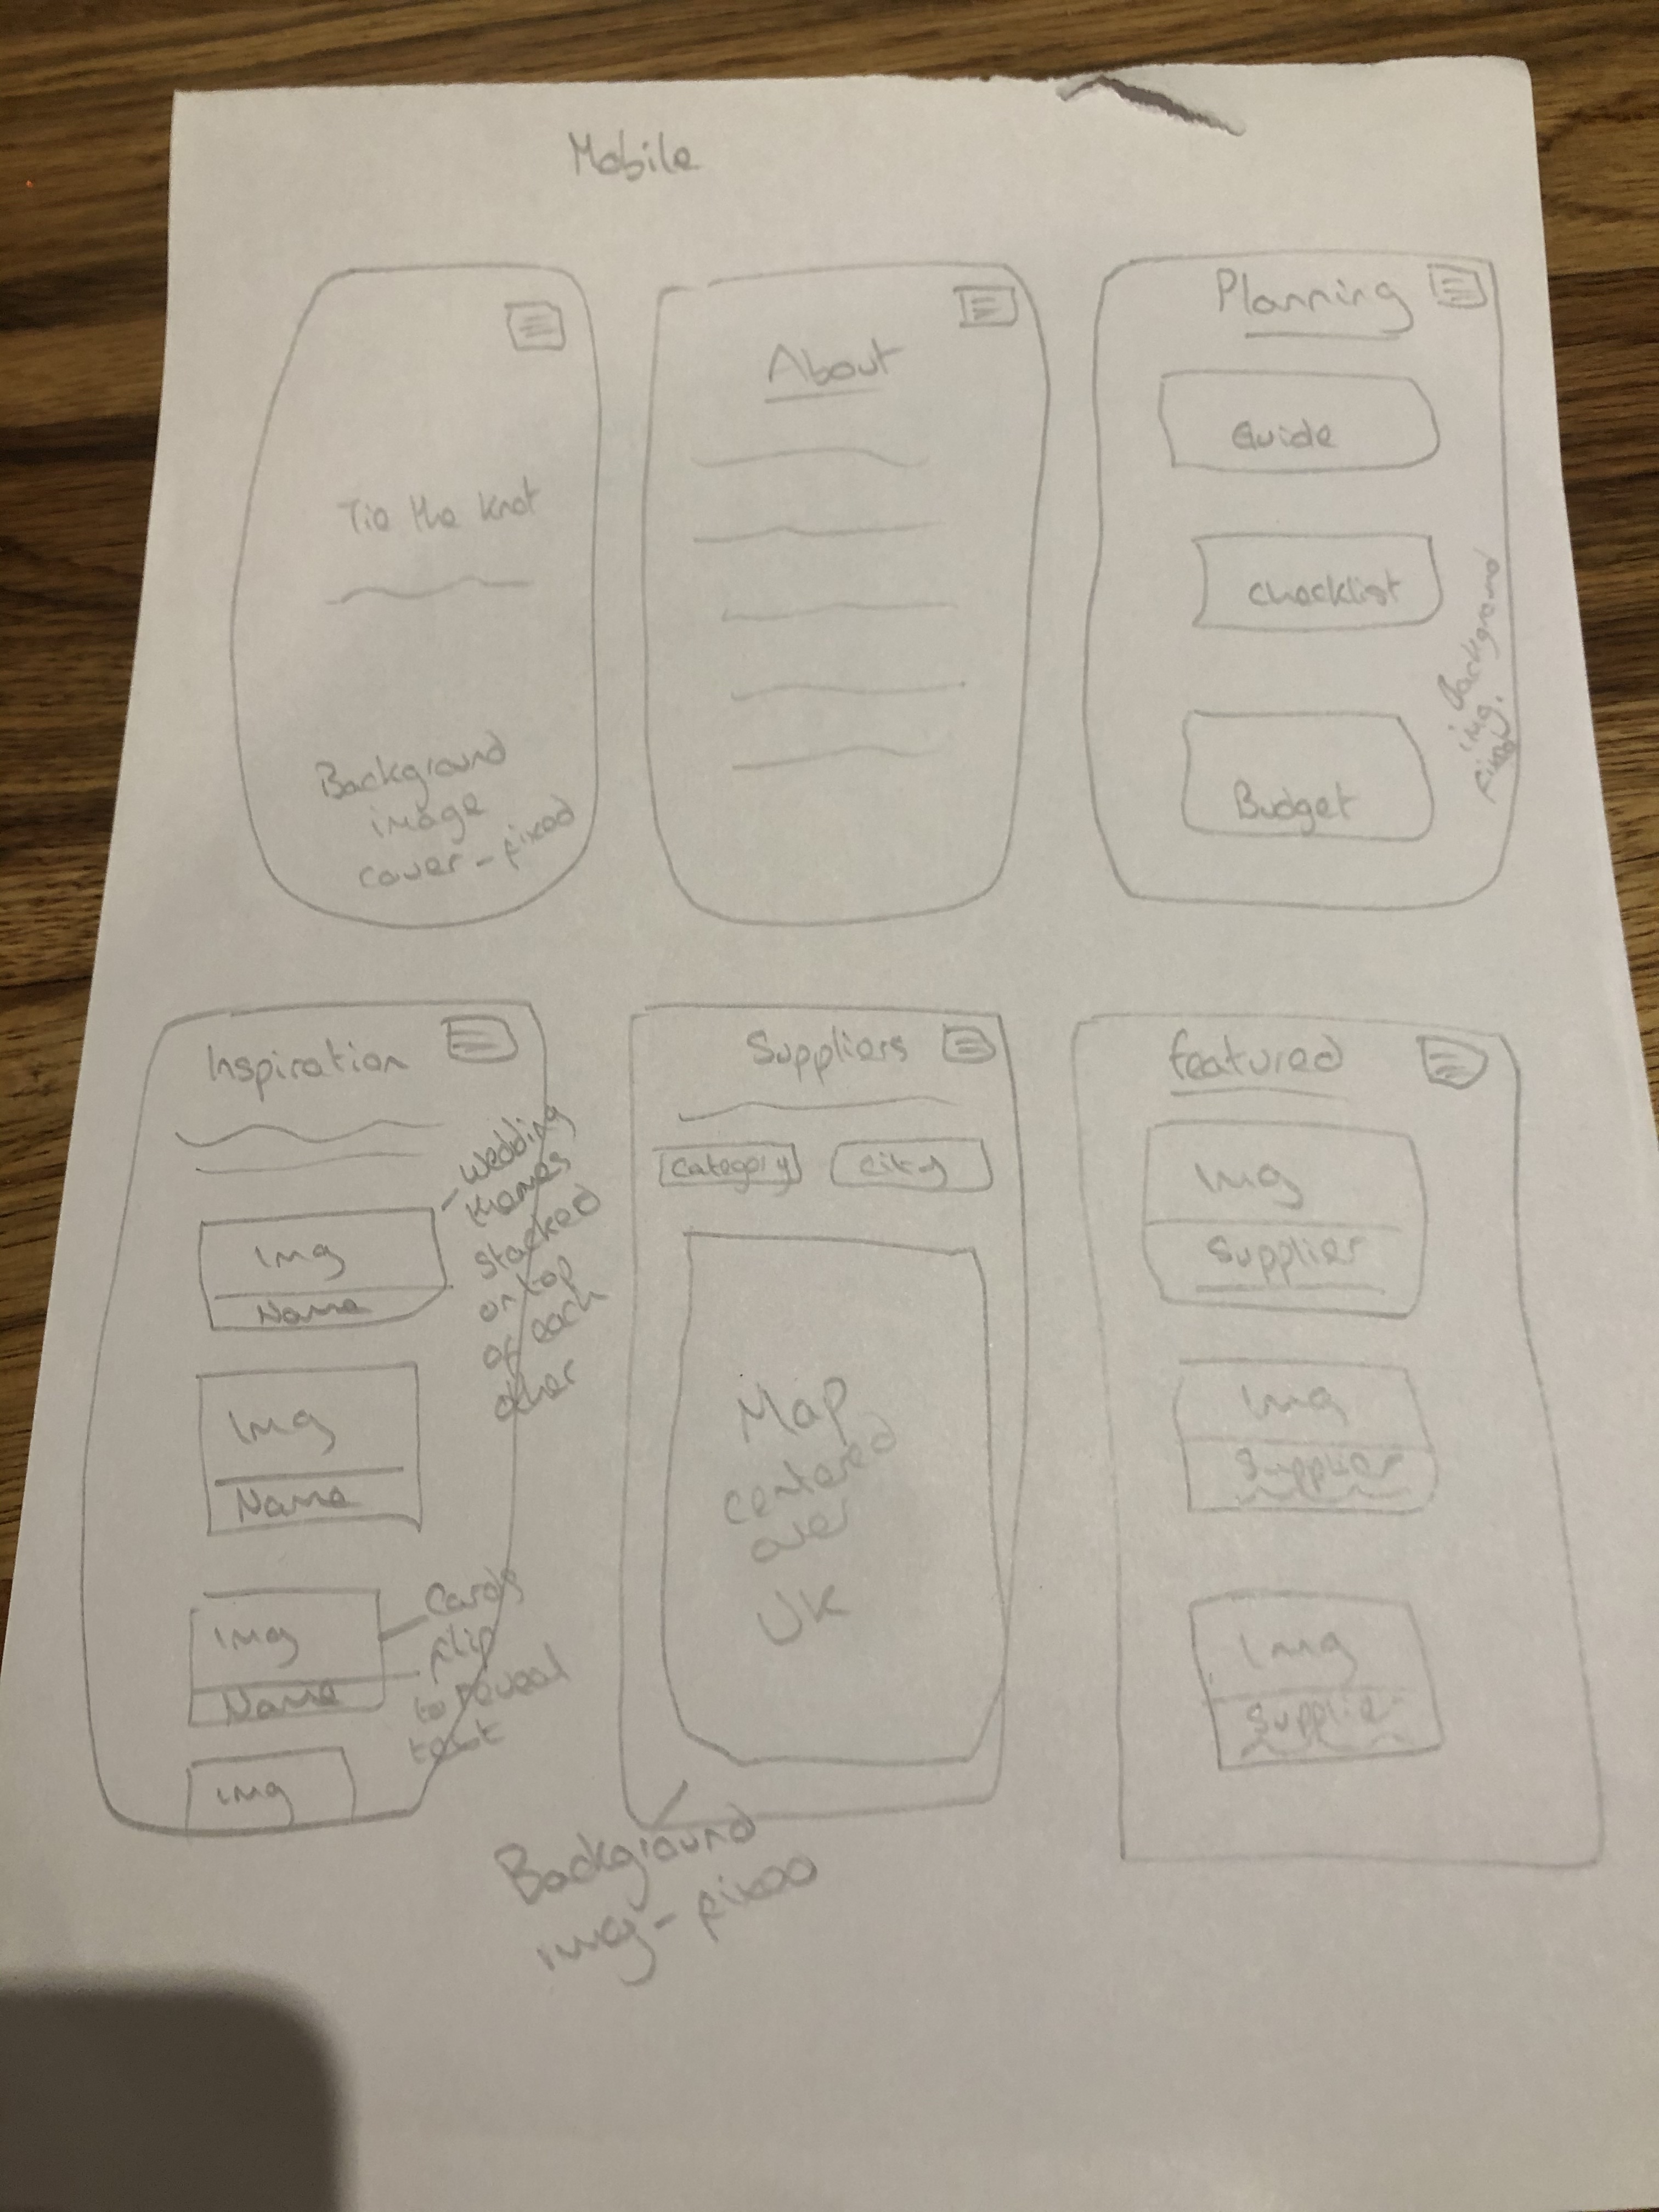 Mobile
Tie the knot
Background
image
cover - fixed
About
Planning
Guide
Checklist
Budget
Background
img.
fixed
Inspiration
Img
Name
Img
Name
Img
Name
img
wedding
themes
stacked
on top
of each
other
Cards
flip
to reveal
text
Suppliers
Category
City
Map
centered
over
UK
Background
img - fixed
featured
Img
Supplier
Img
Supplier
Img
Supplier